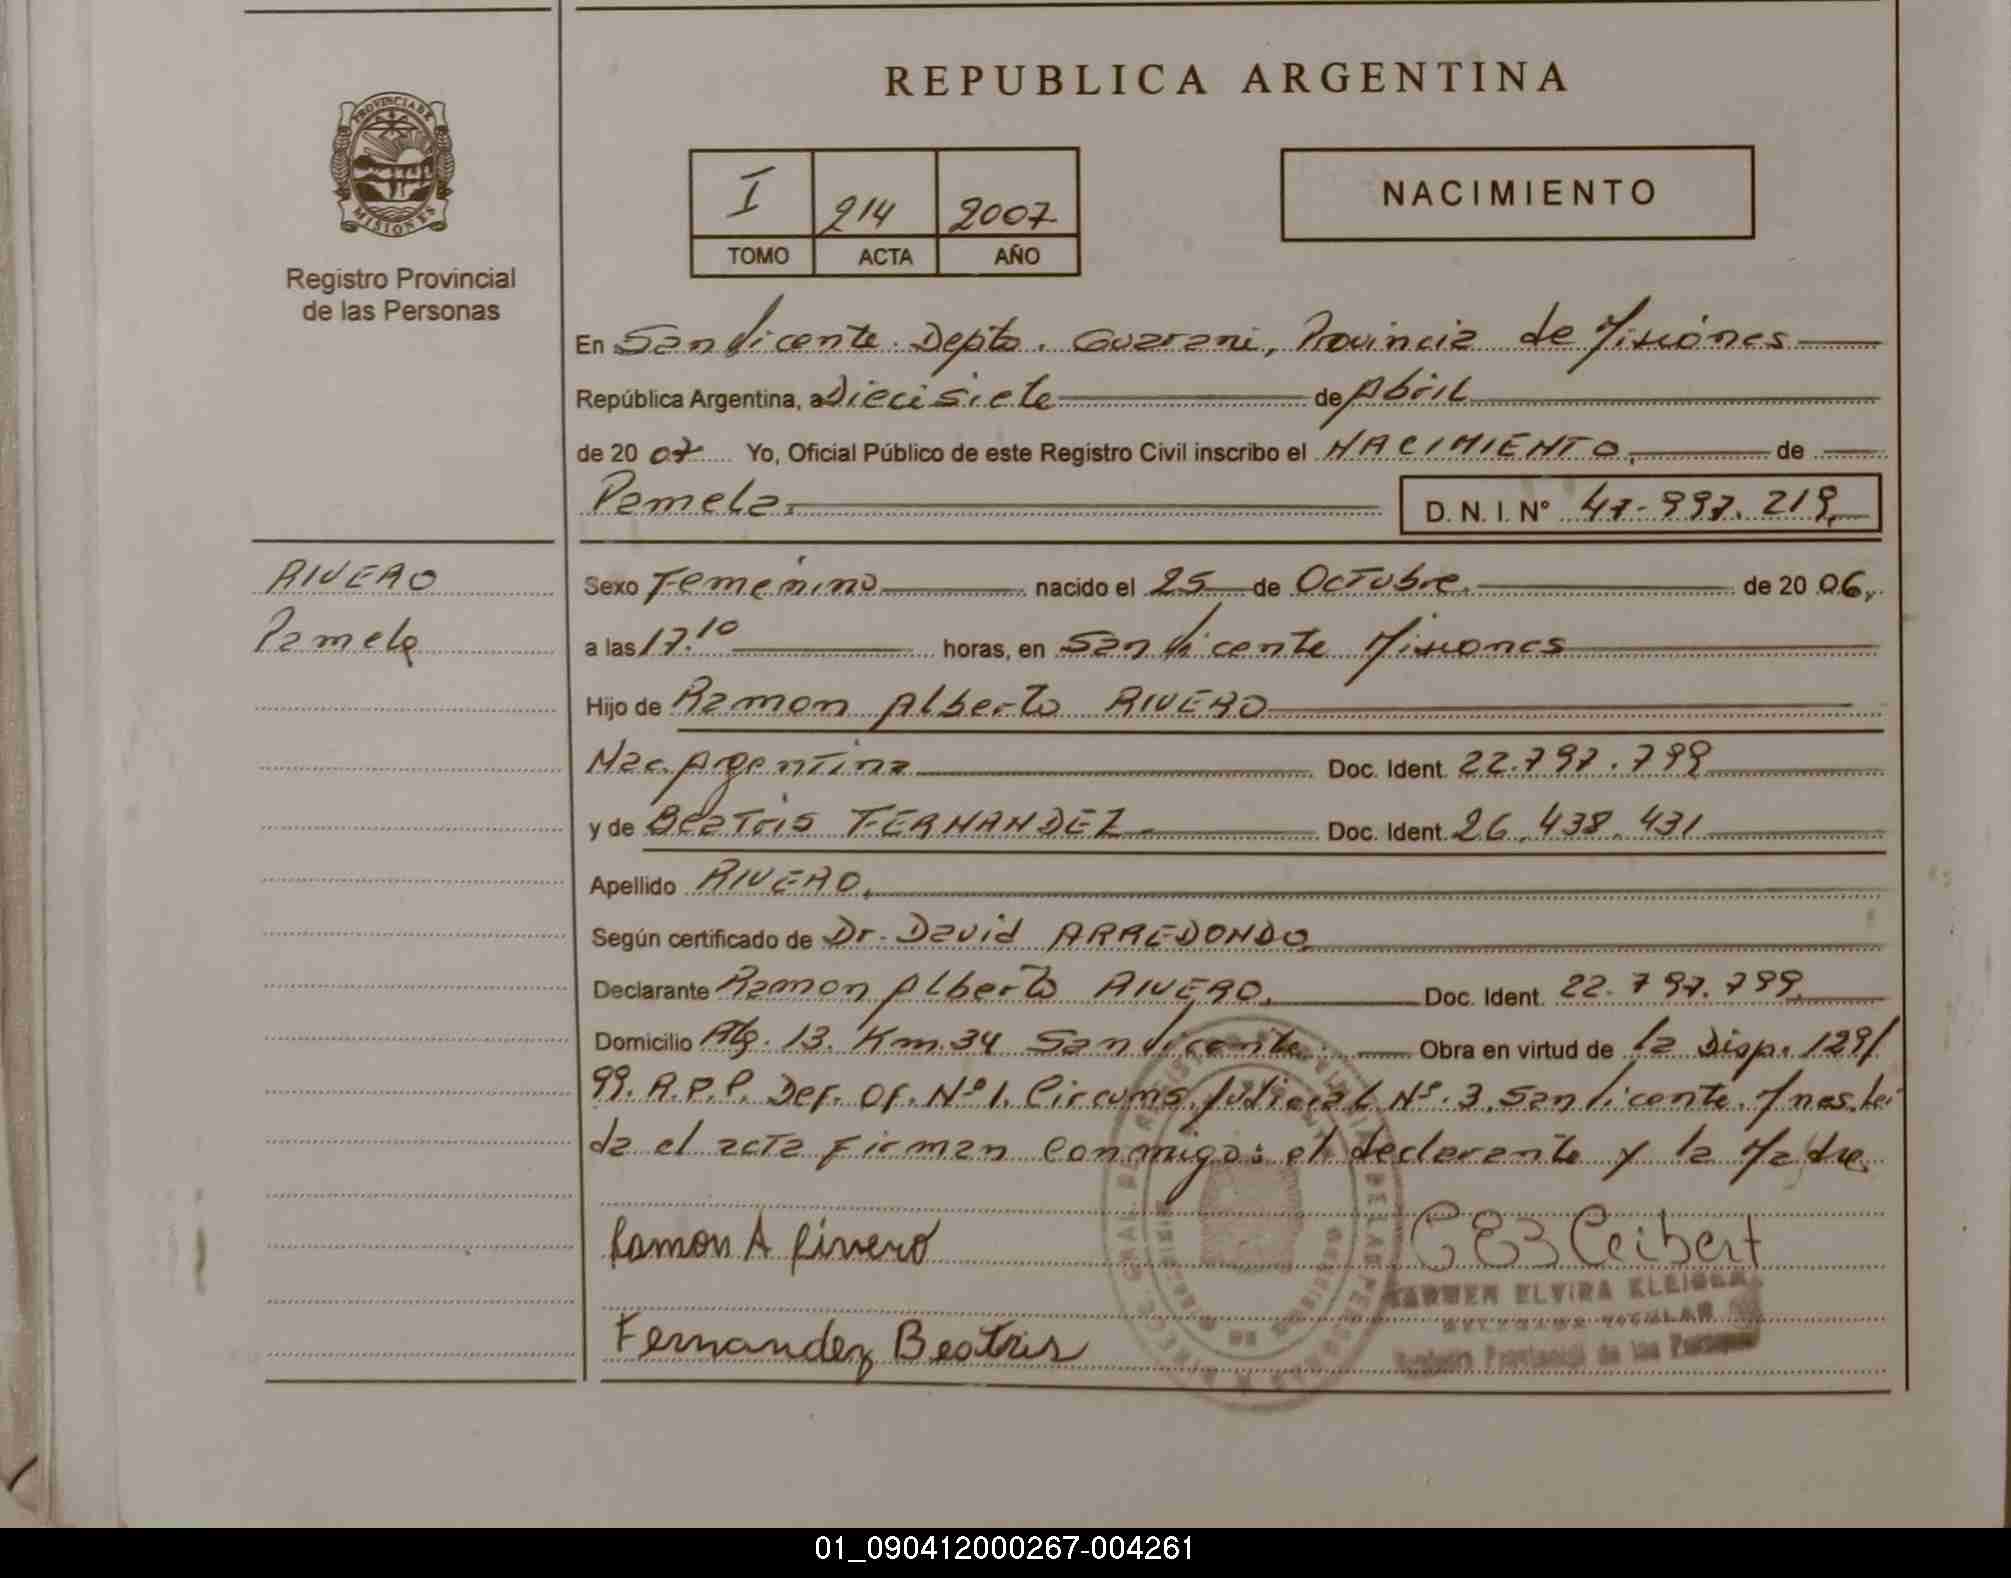 REPUBLICA ARGENTINA
PROVINCIA DE
MISIONES
Registro Provincial
de las Personas
I 214 2007
TOMO ACTA AÑO
NACIMIENTO
En San Vicente. Depto. Guarani, Provincia de Misiones
República Argentina, a Diecisiete de Abril
de 20 07 Yo, Oficial Público de este Registro Civil inscribo el NACIMIENTO, de
Pamela. D. N. I. Nº 47-997.219
RIVERO
Pamela
Sexo Femenino nacido el 25 de Octubre. de 20 06,
a las 17.10 horas, en San Vicente Misiones
Hijo de Ramon Alberto RIVERO
Nac. Argentina Doc. Ident. 22.797.799
y de Beatris FERNANDEZ. Doc. Ident. 26.438.431
Apellido RIVERO.
Según certificado de Dr. David ARREDONDO
Declarante Ramon Alberto RIVERO. Doc. Ident. 22.797.799
Domicilio 13. Km. 34 San Vicente. Obra en virtud de la Disp. 129/
99. R.P.P. Def. Of. Nº 1. Circuns. Judicial Nº. 3. San Vicente. Mnes. Lei
da el acta firman conmigo: el declarante y la Madre
Ramon A Rivero
Fernandez Beatris
CARMEN ELVIRA
Registro Provincial de las Personas
01_090412000267-004261